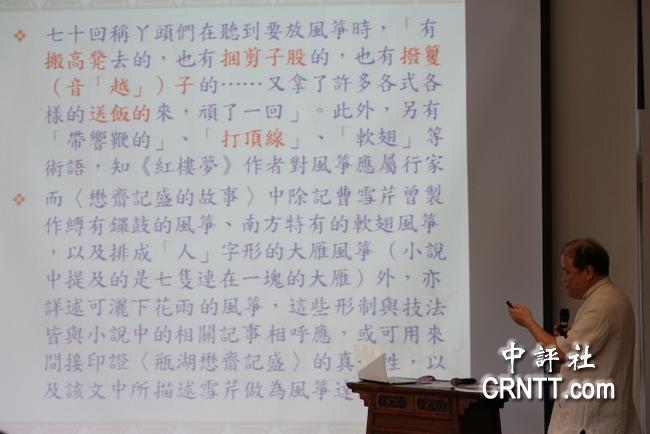 七十回稱丫頭們在聽到要放風箏時，「有
搬高凳去的，也有捆剪子股的，也有撥籰
（音「越」）子的……又拿了許多各式各
樣的送飯的來，頑了一回」。此外，另有
「帶響鞭的」、「打頂線」、「軟翅」等
術語，知《紅樓夢》作者對風箏應屬行家
而〈懋齋記盛的故事〉中除記曹雪芹曾製
作縛有鑼鼓的風箏、南方特有的軟翅風箏
，以及排成「人」字形的大雁風箏（小說
中提及的是七隻連在一塊的大雁）外，亦
詳述可灑下花雨的風箏，這些形制與技法
皆與小說中的相關記事相呼應，或可用來
間接印證〈瓶湖懋齋記盛〉的真 性，以
及該文中所描述雪芹做為風箏達
中評社
CRNTT.com